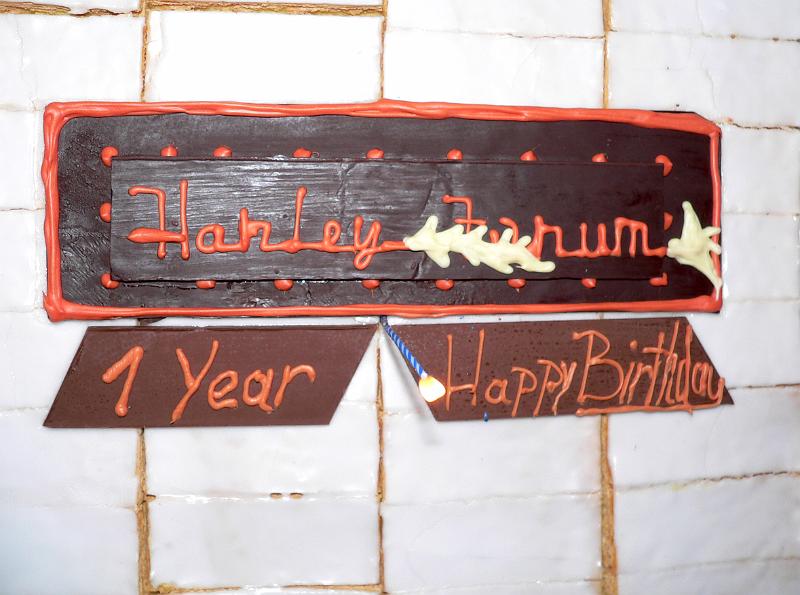 Harley Forum
1 Year
Happy Birthday